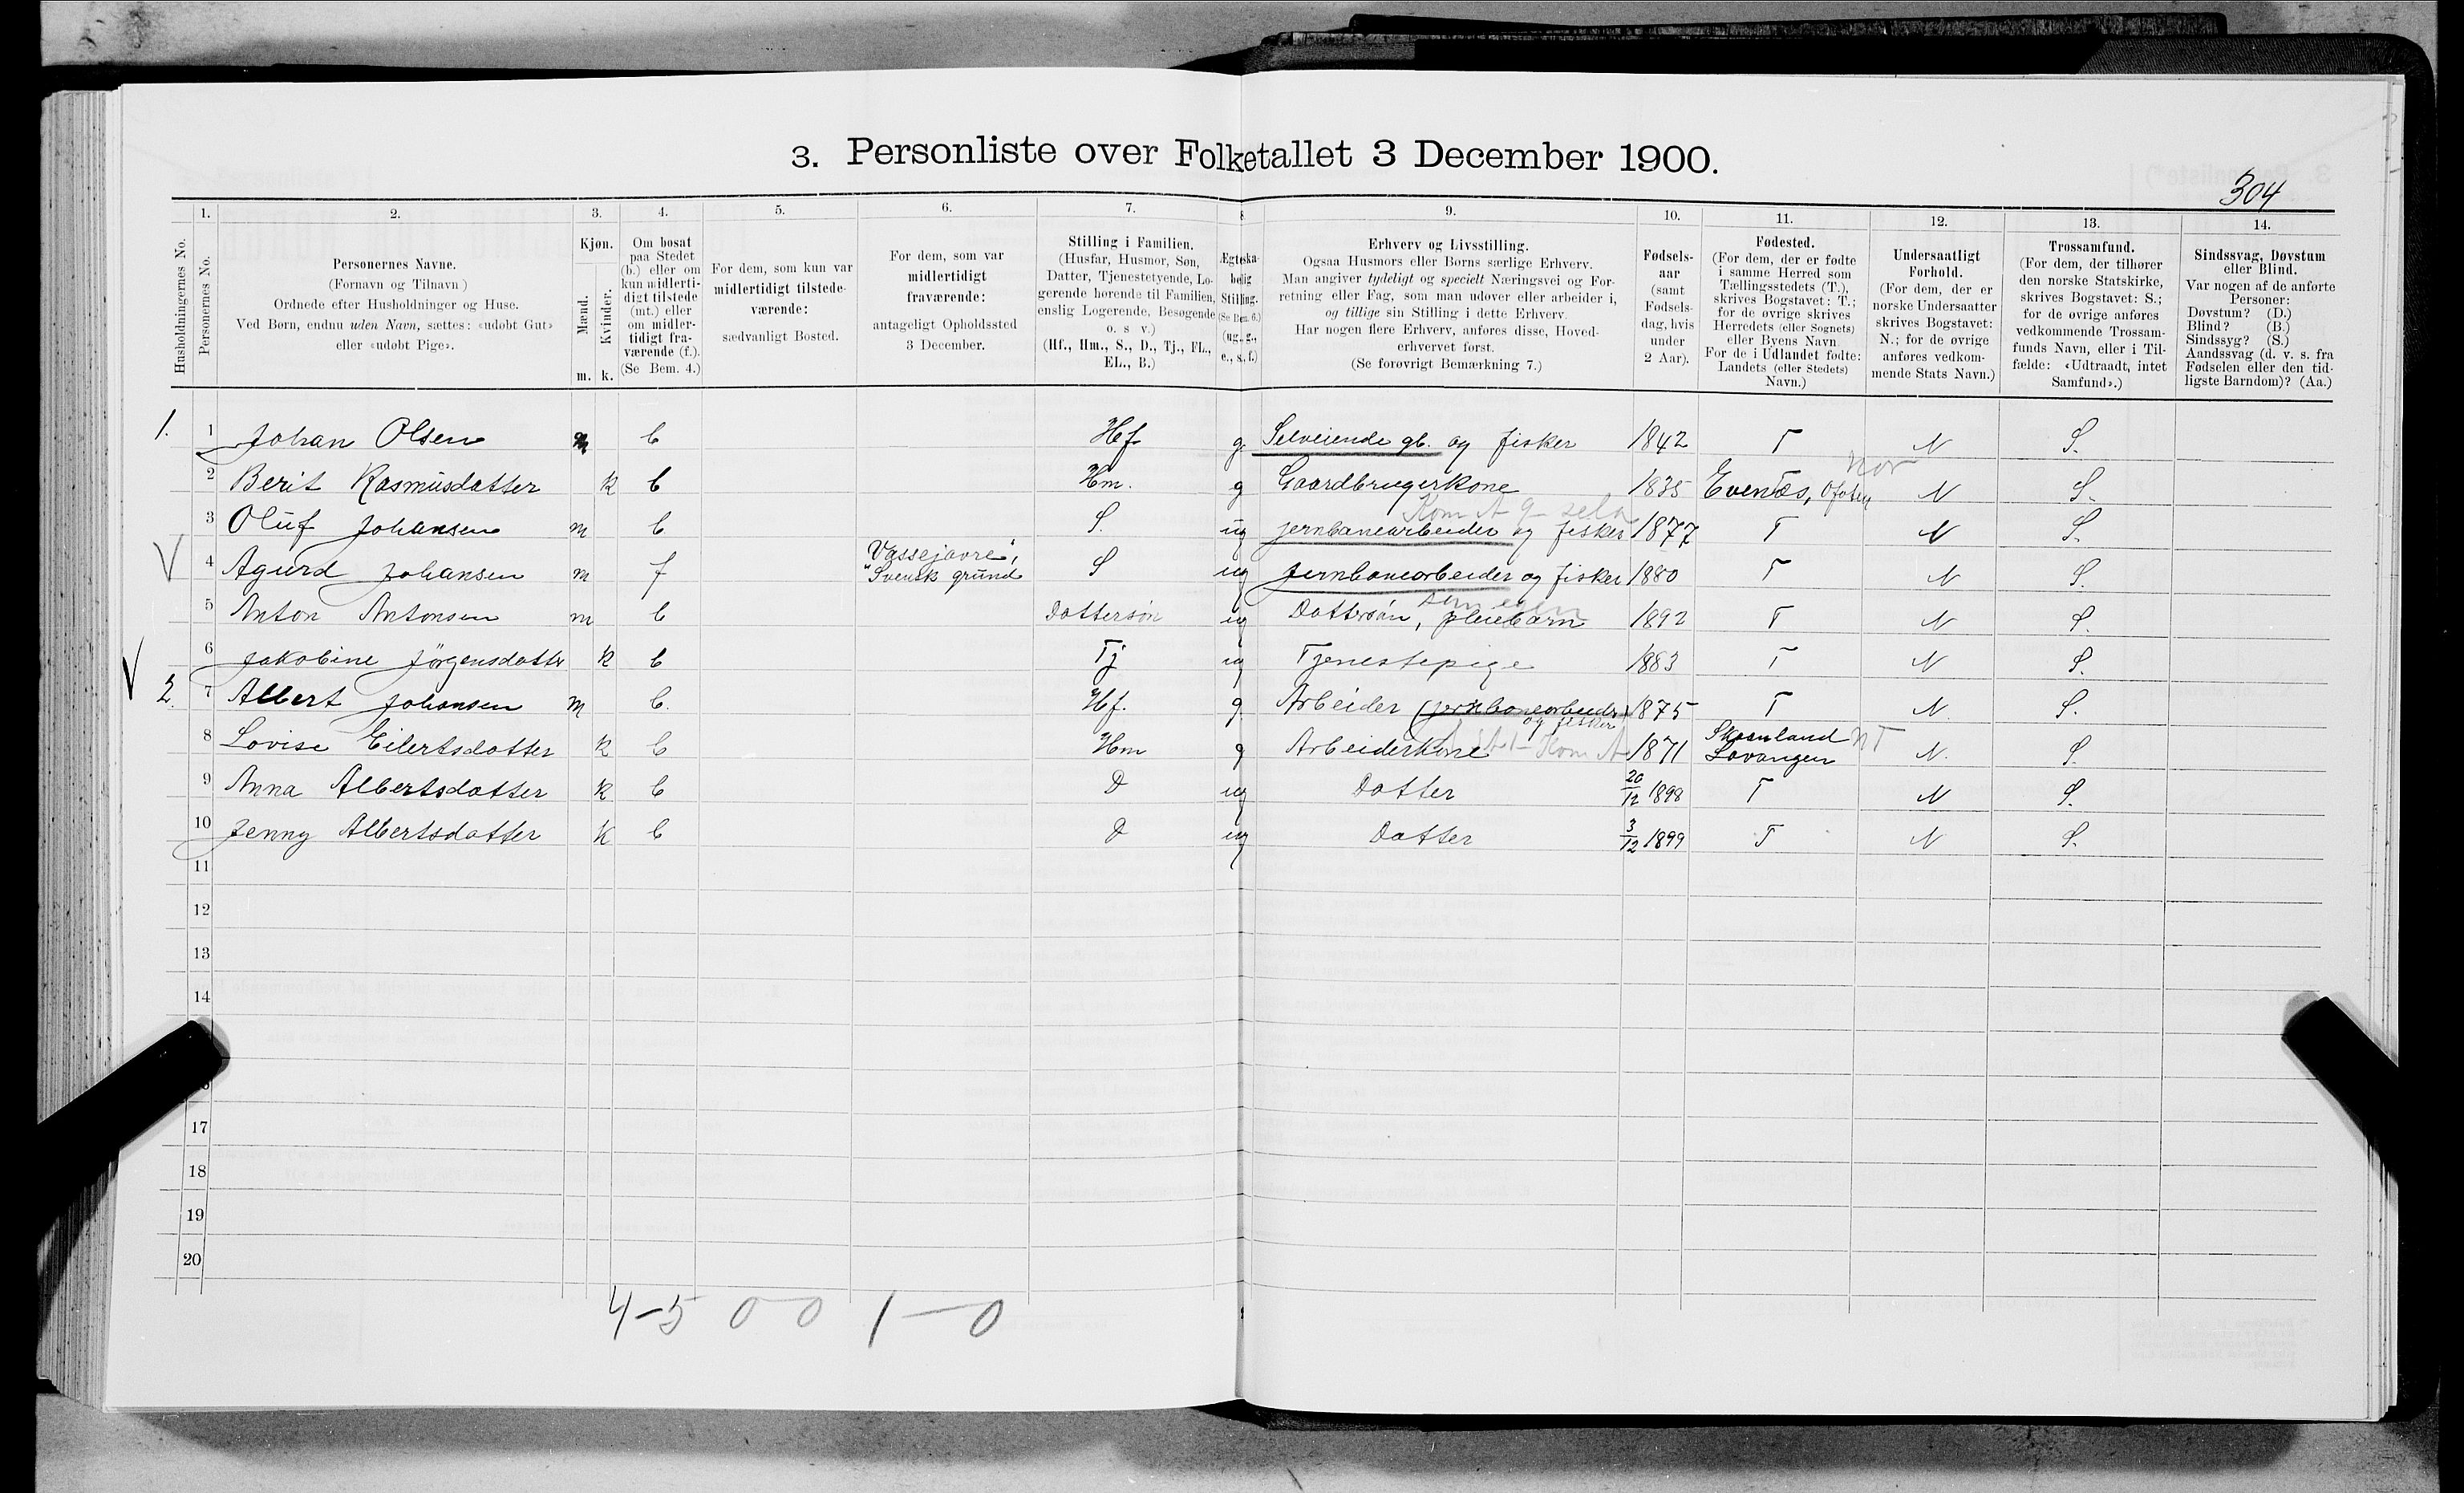 3. Personliste over Folketallet 3 December 1900.
304
Husholdningernes No.
1.
Personernes No.
2.
Personernes Navne.
(Fornavn og Tilnavn)
Ordnede efter Husholdninger og Huse.
Ved Børn, endnu uden Navn, sættes: «udøbt Gut»
eller «udøbt Pige».
3.
Kjøn.
Mænd.
Kvinder.
m. k.
4.
Om bosat
paa Stedet
(b.) eller om
kun midlerti-
digt tilstede
(mt.) eller
om midler-
tidigt fra-
værende (f.).
(Se Bem. 4.)
5.
For dem, som kun var
midlertidigt tilstede-
værende:
sædvanligt Bosted.
6.
For dem, som var
midlertidigt
fraværende:
antageligt Opholdssted
3 December.
7.
Stilling i Familien.
(Husfar, Husmor, Søn,
Datter, Tjenestetyende, Lo-
gerende hørende til Familien,
enslig Logerende, Besøgende
o. s v.)
(Hf., Hm., S., D., Tj., FL.,
EL., B.)
8
Ægteska-
belig
Stilling.
(Se Bem. 6.)
(ug., g.,
e., s., f.)
9.
Erhverv og Livsstilling.
Ogsaa Husmors eller Børns særlige Erhverv.
Man angiver tydeligt og specielt Næringsvei og For-
retning eller Fag, som man udøver eller arbeider i,
og tillige sin Stilling i dette Erhverv.
Har nogen flere Erhverv, anføres disse, Hoved-
erhvervet først.
(Se forøvrigt Bemærkning 7.)
10.
Fødsels-
aar
(samt
Fødsels-
dag, hvis
under
2 Aar).
11.
Fødested.
(For dem, der er fødte
i samme Herred som
Tællingsstedets (T.),
skrives Bogstavet: T.;
for de øvrige skrives
Herredets (eller Sognets)
eller Byens Navn
For de i Udlandet fødte:
Landets (eller Stedets)
Navn.)
12.
Undersaatligt
Forhold.
(For dem, der er
norske Undersaatter
skrives Bogstavet:
N.; for de øvrige
anføres vedkom-
mende Stats Navn.)
13.
Trossamfund.
(For dem, der tilhører
den norske Statskirke,
skrives Bogstavet: S.;
for de øvrige anføres
vedkommende Trossam-
funds Navn, eller i Til-
fælde: «Udtraadt, intet
Samfund».)
14.
Sindssvag, Døvstum
eller Blind.
Var nogen af de anførte
Personer:
Døvstum? (D.)
Blind? (B.)
Sindssyg? (S.)
Aandssvag (d. v. s. fra
Fødselen eller den tid-
ligste Barndom)? (Aa.)
1. 1 Johan Olsen m b Hf g Selveiende gb. og fisker 1842 T N S.
2 Berit Rasmusdatter k b Hm. g Gaardbrugerkone 1835 Evenæs, Ofoten N S.
Nor
3 Oluf Johansen m b S. ug jernbanearbeider og fisker 1877 T N S.
V 4 Agurd Johansen m f Vassejavre, "Svensk grund S ug jernbanearbeider og fisker 1880 T N S.
5 Anton Antonsen m b Dattersøn ug Dattersøn, pleiebarn 1892 T N S.
6 Jakobine Jørgensdatter k b Tj ug Tjenestepige 1883 T N S.
V 2. 7 Albert Johansen m b. Hf. g. Arbeider (jernbanearbeider) og fisker 1875 T N. S.
8 Lovise Eilertsdatter k b Hm g Arbeiderkone 1871 Skaanland Lavangen NT N. S.
9 Anna Albertsdatter k b D ug Datter 20/12 1898 T N S.
10 Jenny Albertsdatter k b D ug Datter 3/12 1899 T N S.
11
12
13
14
17
18
19
20
4-5 0 0 1-0